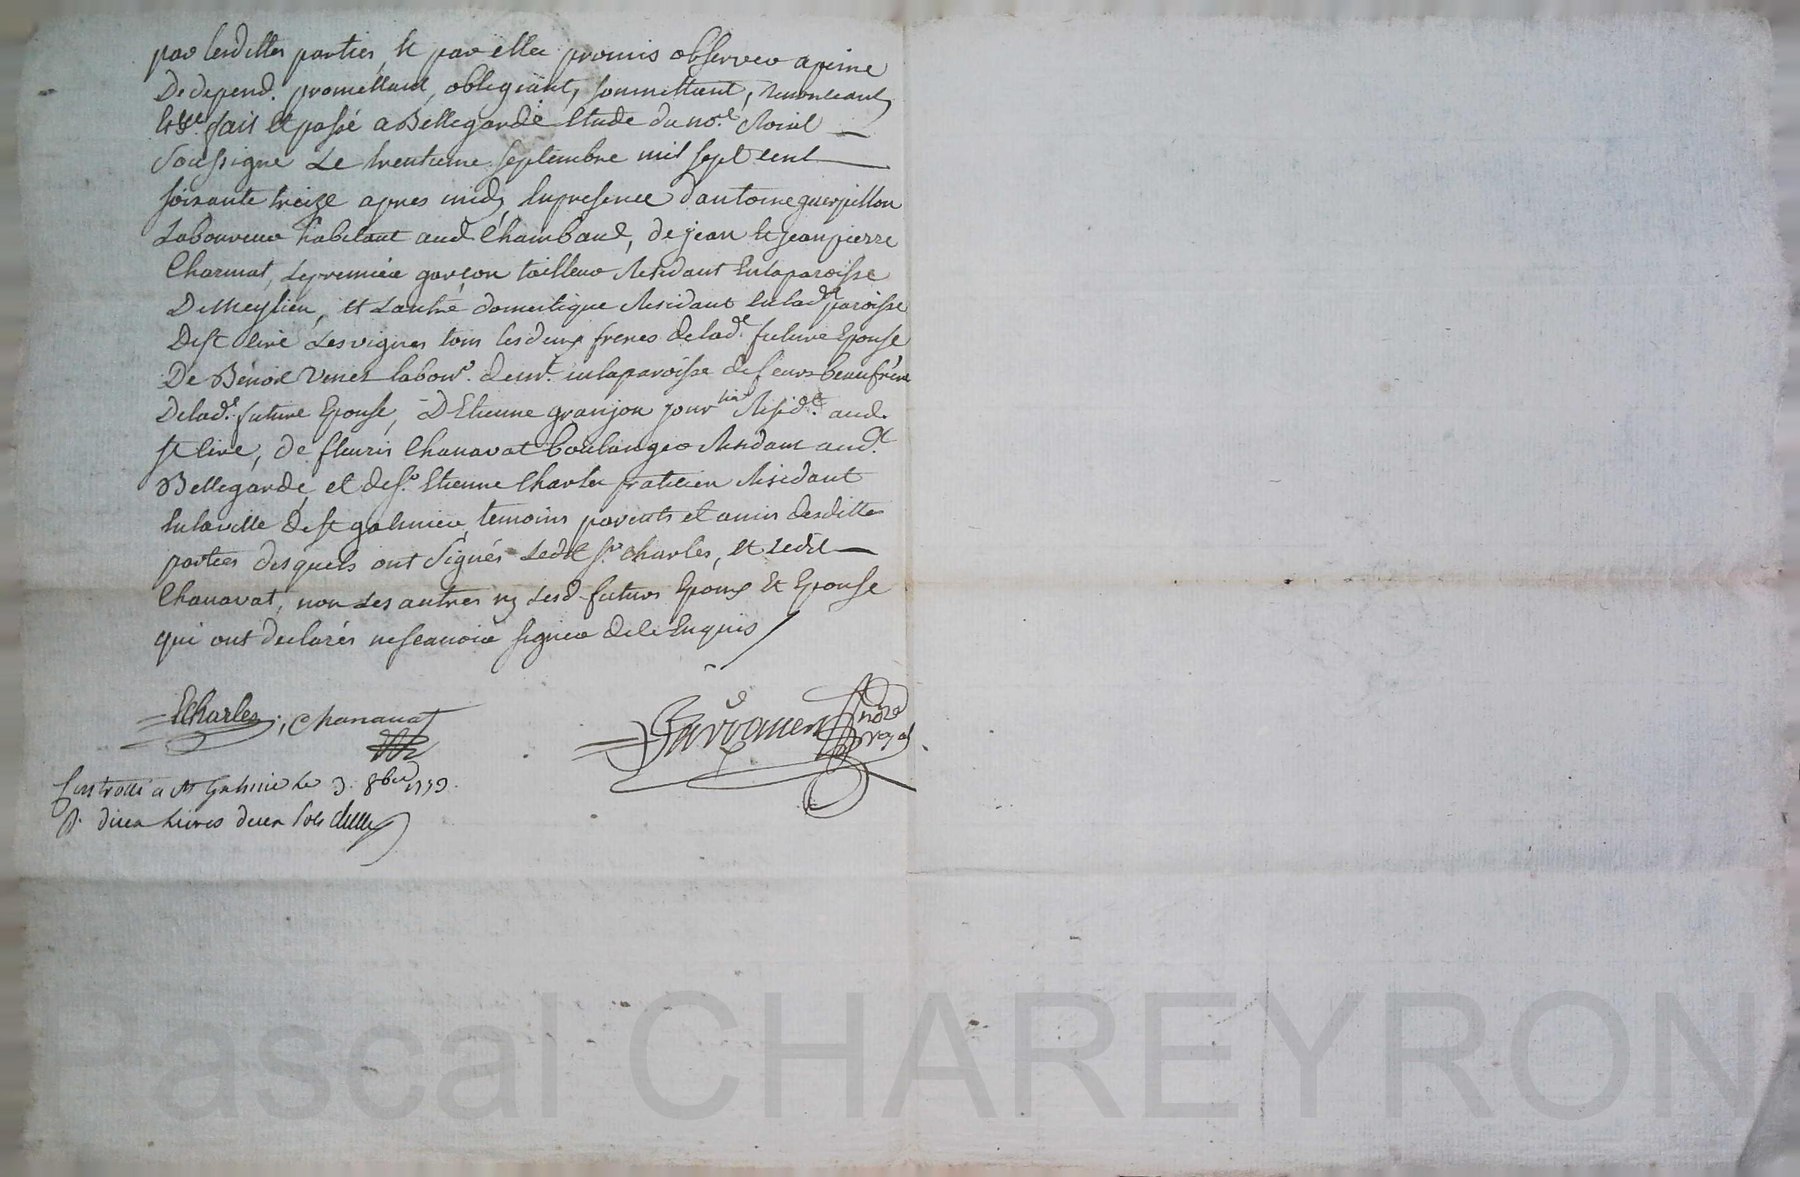 par lesdittes parties, et par elles promis observer apeine
De depend. promettant, obligeant, soumettant, renonceant
&c. fait et passé a Bellegarde Etude du no.re Roial
soussigné Le trentieme septembre mil sept cent
soixante treize apres midy, En presence d'antoine guerpillon
Laboureur habitant aud. Chambaud, de jean et jean pierre
Charmat, Le premier garçon tailleur Residant En la paroisse
De Meylieu, et Lautre domestique Residant En lad.e paroisse
De st Cire Les vignes tous les deux freres de lad.e future Epouse
De Benoit Venet labour. demt. en la paroisse de feurs beaufrere
De lad.e future Epouse, D'Etienne granjon journ.lier Resid.t aud.
st Cire, de fleuris Chanavat Boulanger Residant aud.t
Bellegarde, et de s.r Etienne Charles praticien Residant
En la ville de st galmier, temoins parents et amis desdittes
parties desquels ont signés Ledit s.r Charles, et Ledit
Chanavat, non Les autres ny Lesd. futurs Epoux Et Epouse
qui ont declarés ne scavoir signer de ce Enquis
ECharles, Chanavat
nore
royal
Controllé a st Galmier Le 3. 8bre 1773.
R. dix livres deux sols
Pascal CHAREYRON